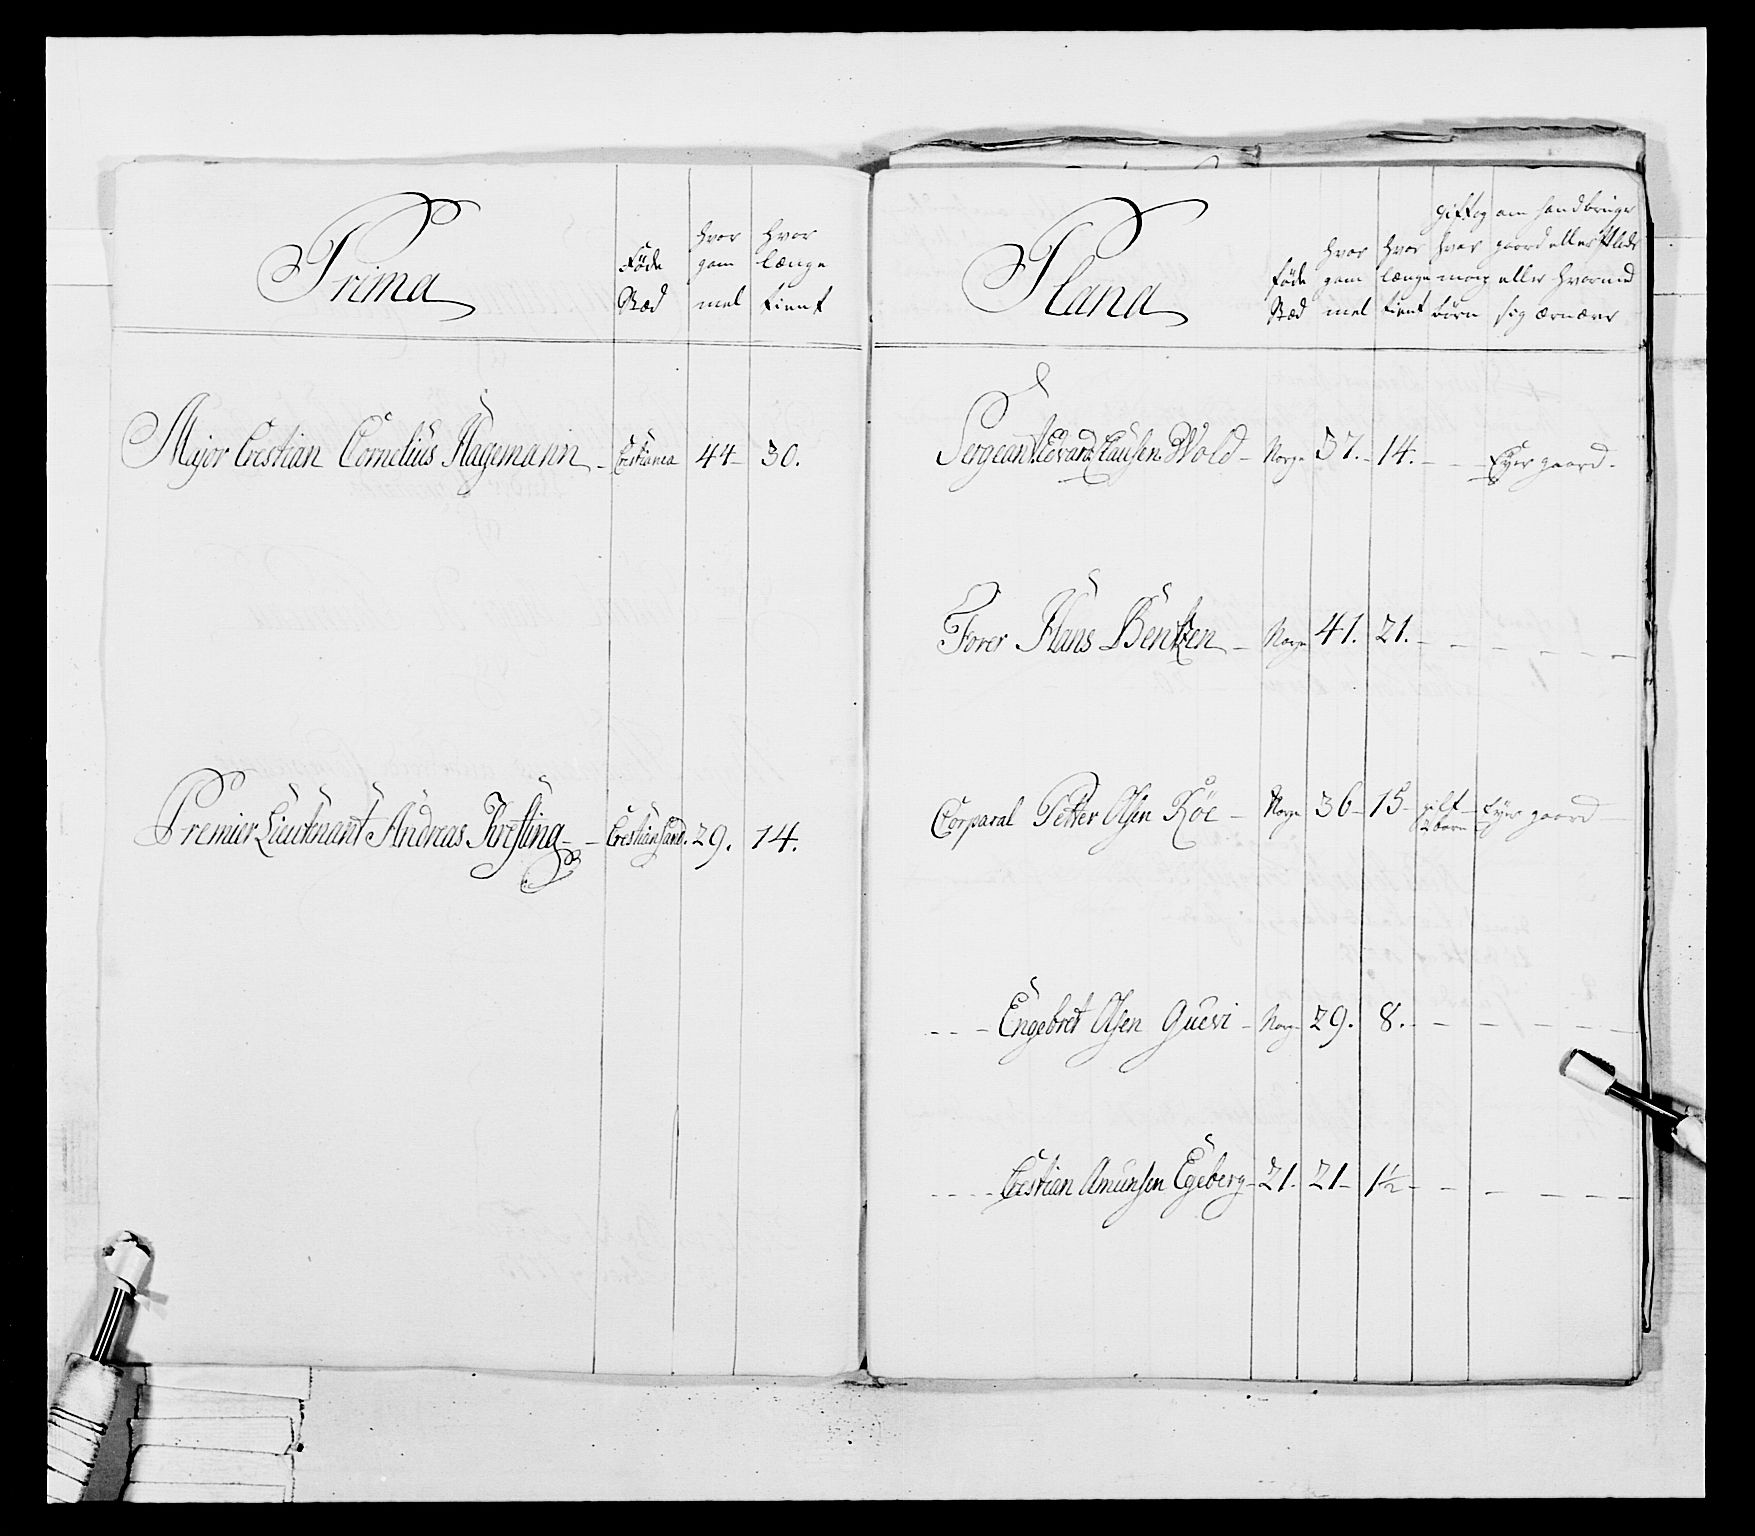 Prima
Føde Stæd
hvor gam mel
hvor længe tient
Major Crestian Cornelius Hagemann - Cristiania 44 - 30.
Premier Lieutenant Andreas Kresting - - Crestiansand. 29. 14.
Plana
føde Stæd
hvor gam mel
hvor længe tient
gift og hvor mang børn
om hand bruger gaard eller Plads eller hvormed sig ærnærer
Sergeant Edvard Clausen Wold - Norge 37. - 14. - - Eyer gaard -
Forer Hans Bentzen - Norge 41. 21. - - - - - -
Corparal Petter Olsen Röe - Norge 36 - 15 - gift 2 børn - Eyer gaard -
- - - Engebret Olsen - Norge 29. 8. - - - - - -
- - - - Crestian Amunsen Egeberg - 21. 21 - 1½ - - - - - -